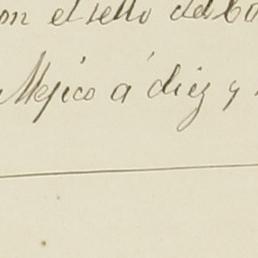 on el sello del Co
Mejico á diez y